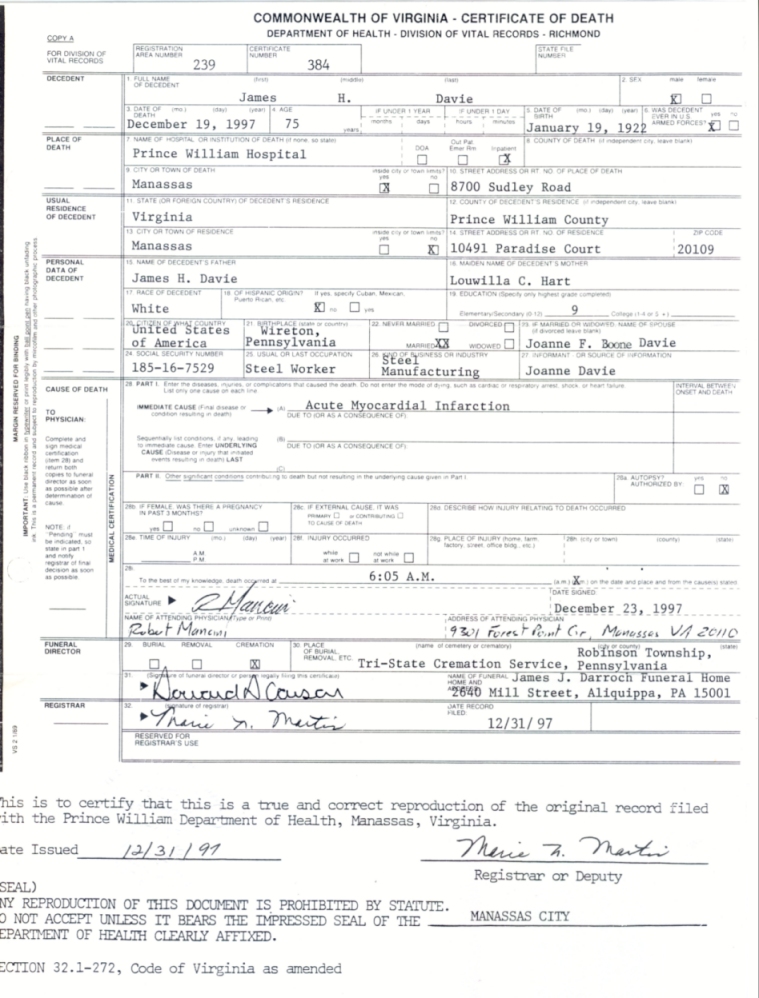 COMMONWEALTH OF VIRGINIA - CERTIFICATE OF DEATH
DEPARTMENT OF HEALTH - DIVISION OF VITAL RECORDS - RICHMOND
COPY A
FOR DIVISION OF VITAL RECORDS
REGISTRATION AREA NUMBER 239
CERTIFICATE NUMBER 384
STATE FILE NUMBER
DECEDENT
1. FULL NAME OF DECEDENT (first) (middle) (last)
James H. Davie
2. SEX male female
X
3. DATE OF DEATH (mo.) (day) (year)
December 19, 1997
4. AGE
75 years
IF UNDER 1 YEAR months days
IF UNDER 1 DAY hours minutes
5. DATE OF BIRTH (mo.) (day) (year)
January 19, 1922
6. WAS DECEDENT EVER IN U.S. ARMED FORCES? yes no
X
PLACE OF DEATH
7. NAME OF HOSPITAL OR INSTITUTION OF DEATH (if none, so state)
Prince William Hospital
DOA Out Pat Emer Rm Inpatient
X
8. COUNTY OF DEATH (if independent city, leave blank)
9. CITY OR TOWN OF DEATH
Manassas
inside city or town limits? yes no
X
10. STREET ADDRESS OR RT. NO. OF PLACE OF DEATH
8700 Sudley Road
USUAL RESIDENCE OF DECEDENT
11. STATE (OR FOREIGN COUNTRY) OF DECEDENT'S RESIDENCE
Virginia
12. COUNTY OF DECEDENT'S RESIDENCE (if independent city, leave blank)
Prince William County
13. CITY OR TOWN OF RESIDENCE
Manassas
inside city or town limits? yes no
X
14. STREET ADDRESS OR RT. NO. OF RESIDENCE
10491 Paradise Court
ZIP CODE
20109
PERSONAL DATA OF DECEDENT
15. NAME OF DECEDENT'S FATHER
James H. Davie
16. MAIDEN NAME OF DECEDENT'S MOTHER
Louwilla C. Hart
17. RACE OF DECEDENT
White
18. OF HISPANIC ORIGIN? If yes, specify Cuban, Mexican, Puerto Rican, etc.
X no yes
19. EDUCATION (Specify only highest grade completed)
Elementary/Secondary (0-12) 9 College (1-4 or 5 +)
20. CITIZEN OF WHAT COUNTRY
United States of America
21. BIRTHPLACE (state or country)
Wireton, Pennsylvania
22. NEVER MARRIED DIVORCED
MARRIED XX WIDOWED
23. IF MARRIED OR WIDOWED, NAME OF SPOUSE (if divorced leave blank)
Joanne F. Boone Davie
24. SOCIAL SECURITY NUMBER
185-16-7529
25. USUAL OR LAST OCCUPATION
Steel Worker
26. KIND OF BUSINESS OR INDUSTRY
Steel Manufacturing
27. INFORMANT - OR SOURCE OF INFORMATION
Joanne Davie
CAUSE OF DEATH
28. PART I. Enter the diseases, injuries, or complications that caused the death. Do not enter the mode of dying, such as cardiac or respiratory arrest, shock, or heart failure.
List only one cause on each line.
INTERVAL BETWEEN ONSET AND DEATH
TO PHYSICIAN:
IMMEDIATE CAUSE (Final disease or condition resulting in death)
(A) Acute Myocardial Infarction
DUE TO (OR AS A CONSEQUENCE OF)
Complete and sign medical certification (item 28) and return both copies to funeral director as soon as possible after determination of cause.
Sequentially list conditions, if any, leading to immediate cause. Enter UNDERLYING CAUSE (Disease or injury that initiated events resulting in death) LAST
(B)
DUE TO (OR AS A CONSEQUENCE OF)
(C)
PART II. Other significant conditions contributing to death but not resulting in the underlying cause given in Part I
28a. AUTOPSY? AUTHORIZED BY: yes no
X
28b. IF FEMALE, WAS THERE A PREGNANCY IN PAST 3 MONTHS?
yes no unknown
28c. IF EXTERNAL CAUSE, IT WAS
PRIMARY or CONTRIBUTING TO CAUSE OF DEATH
28d. DESCRIBE HOW INJURY RELATING TO DEATH OCCURRED
NOTE: If "Pending" must be indicated, so state in part I and notify registrar of final decision as soon as possible.
28e. TIME OF INJURY (mo.) (day) (year)
A.M. P.M.
28f. INJURY OCCURRED
while at work not while at work
28g. PLACE OF INJURY (home, farm, factory, street, office bldg., etc.)
28h. (city or town) (county) (state)
To the best of my knowledge, death occurred at 6:05 A.M. (a.m.) X on the date and place and from the cause(s) stated
ACTUAL SIGNATURE R Mancini
DATE SIGNED
December 23, 1997
NAME OF ATTENDING PHYSICIAN (Type or Print)
Robert Mancini
ADDRESS OF ATTENDING PHYSICIAN
9301 Forest Point Cir, Manassas VA 20110
FUNERAL DIRECTOR
29. BURIAL REMOVAL CREMATION
X
30. PLACE OF BURIAL, REMOVAL, ETC.
(name of cemetery or crematory) (city or county) (state)
Robinson Township,
Tri-State Cremation Service, Pennsylvania
31. (Signature of funeral director or person legally filing this certificate)
NAME OF FUNERAL HOME AND ADDRESS
James J. Darroch Funeral Home
2640 Mill Street, Aliquippa, PA 15001
REGISTRAR
32. (signature of registrar)
Marie N. Martin
DATE RECORD FILED:
12/31/97
RESERVED FOR REGISTRAR'S USE
MARGIN RESERVED FOR BINDING
MEDICAL CERTIFICATION
VS 2 1/89
his is to certify that this is a true and correct reproduction of the original record filed
ith the Prince William Department of Health, Manassas, Virginia.
ate Issued 12/31/97
Marie N. Martin
Registrar or Deputy
SEAL)
NY REPRODUCTION OF THIS DOCUMENT IS PROHIBITED BY STATUTE.
O NOT ACCEPT UNLESS IT BEARS THE IMPRESSED SEAL OF THE
MANASSAS CITY
EPARTMENT OF HEALTH CLEARLY AFFIXED.
ECTION 32.1-272, Code of Virginia as amended